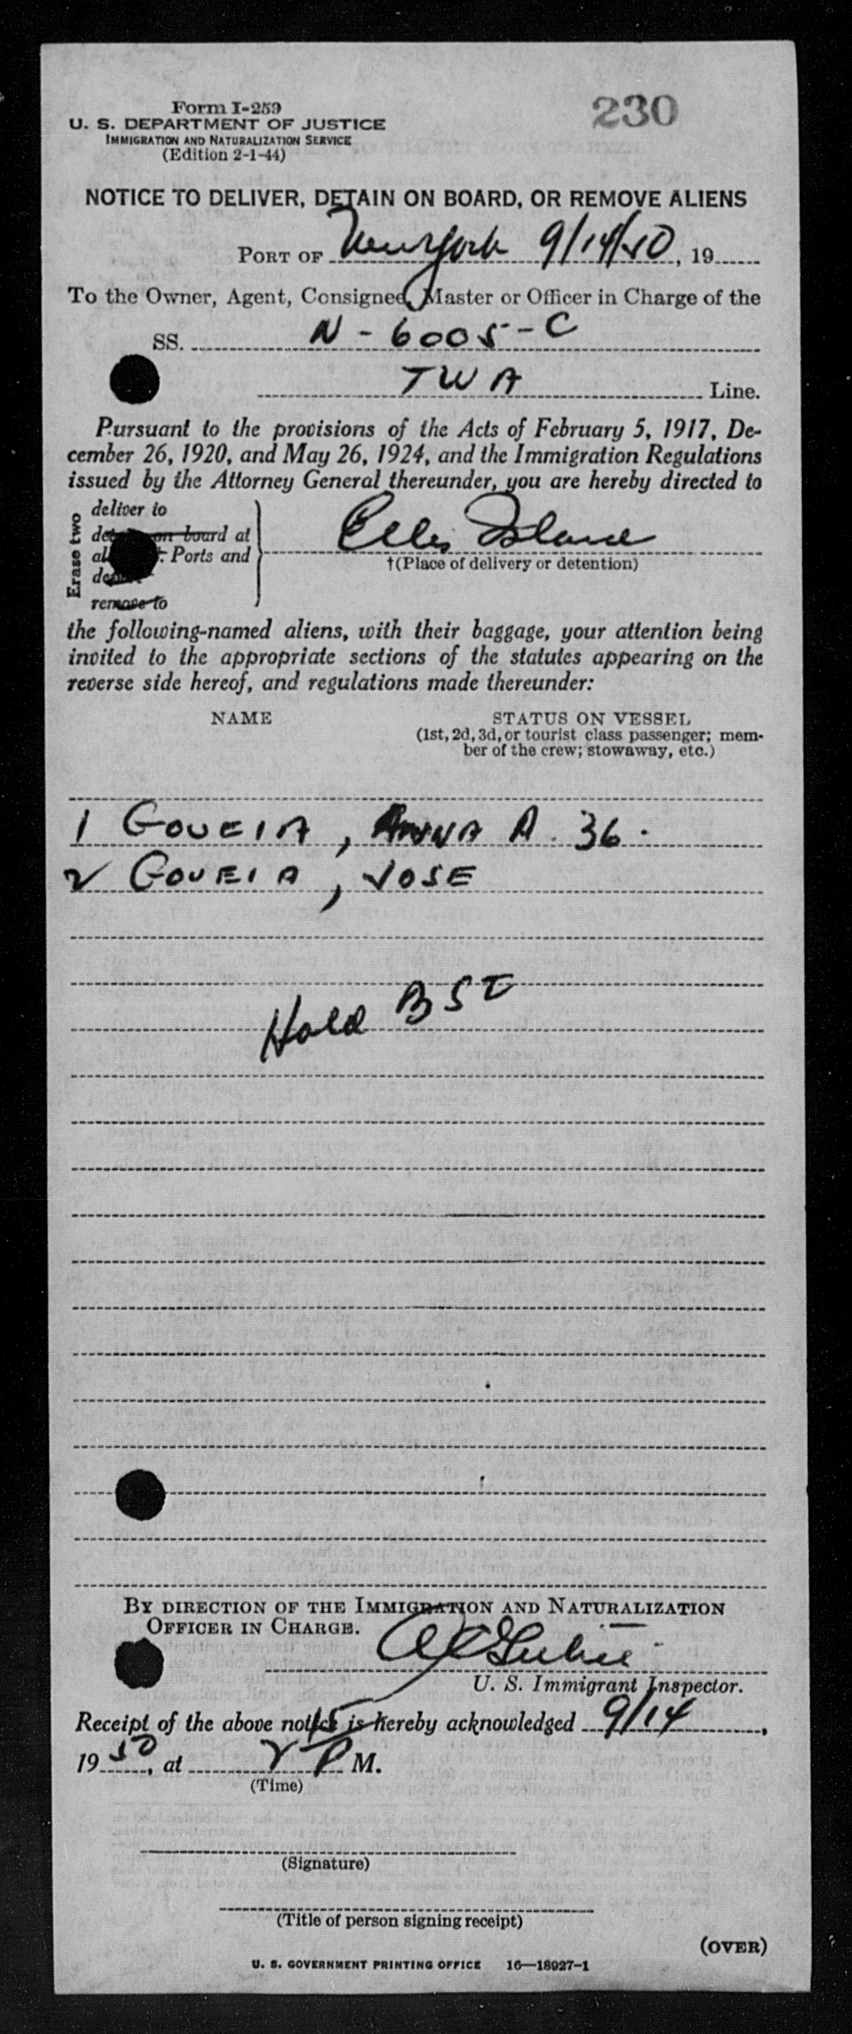 Form I-259
230
U. S. DEPARTMENT OF JUSTICE
IMMIGRATION AND NATURALIZATION SERVICE
(Edition 2-1-44)
NOTICE TO DELIVER, DETAIN ON BOARD, OR REMOVE ALIENS
PORT OF New York 9/14/50, 19
To the Owner, Agent, Consignee, Master or Officer in Charge of the
SS. N - 6005 - C
TWA Line.
Pursuant to the provisions of the Acts of February 5, 1917, De-
cember 26, 1920, and May 26, 1924, and the Immigration Regulations
issued by the Attorney General thereunder, you are hereby directed to
Erase two
deliver to
on board at
Ports and
remove to
Ellis Island
†(Place of delivery or detention)
the following-named aliens, with their baggage, your attention being
invited to the appropriate sections of the statutes appearing on the
reverse side hereof, and regulations made thereunder:
NAME STATUS ON VESSEL
(1st, 2d, 3d, or tourist class passenger; mem-
ber of the crew; stowaway, etc.)
1 GOUEIA, ANNA A. 36.
2 GOUEIA, JOSE
Hold BSI
BY DIRECTION OF THE IMMIGRATION AND NATURALIZATION
OFFICER IN CHARGE.
U. S. Immigrant Inspector.
Receipt of the above notice is hereby acknowledged 9/14,
19 50, at 2 P M.
(Time)
(Signature)
(Title of person signing receipt)
(OVER)
U. S. GOVERNMENT PRINTING OFFICE 16—18027-1